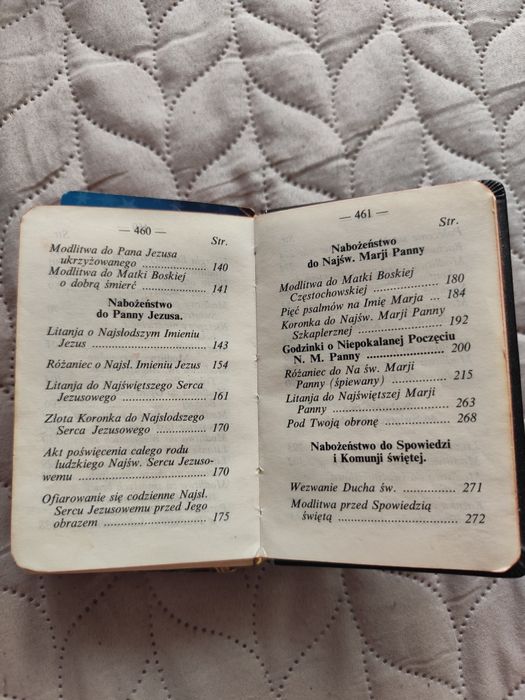 — 460 —
Str.
Modlitwa do Pana Jezusa
ukrzyżowanego ............ 140
Modlitwa do Matki Boskiej
o dobrą śmierć ............ 141
Nabożeństwo
do Panny Jezusa.
Litanja do Najsłodszym Imieniu
Jezus ............ 143
Różaniec o Najsł. Imieniu Jezus 154
Litanja do Najświętszego Serca
Jezusowego ............ 161
Złota Koronka do Najsłodszego
Serca Jezusowego ............ 170
Akt poświęcenia całego rodu
ludzkiego Najśw. Sercu Jezuso-
wemu ............ 170
Ofiarowanie się codzienne Najsł.
Sercu Jezusowemu przed Jego
obrazem ............ 175
— 461 —
Str.
Nabożeństwo
do Najśw. Marji Panny
Modlitwa do Matki Boskiej
Częstochowskiej ............ 180
Pięć psalmów na Imię Marja ... 184
Koronka do Najśw. Marji Panny
Szkaplerznej ............ 192
Godzinki o Niepokalanej Poczęciu
N. M. Panny ............ 200
Różaniec do Na św. Marji
Panny (śpiewany) ............ 215
Litanja do Najświętszej Marji
Panny ............ 263
Pod Twoją obronę ............ 268
Nabożeństwo do Spowiedzi
i Komunji świętej.
Wezwanie Ducha św. ............ 271
Modlitwa przed Spowiedzią
świętą ............ 272